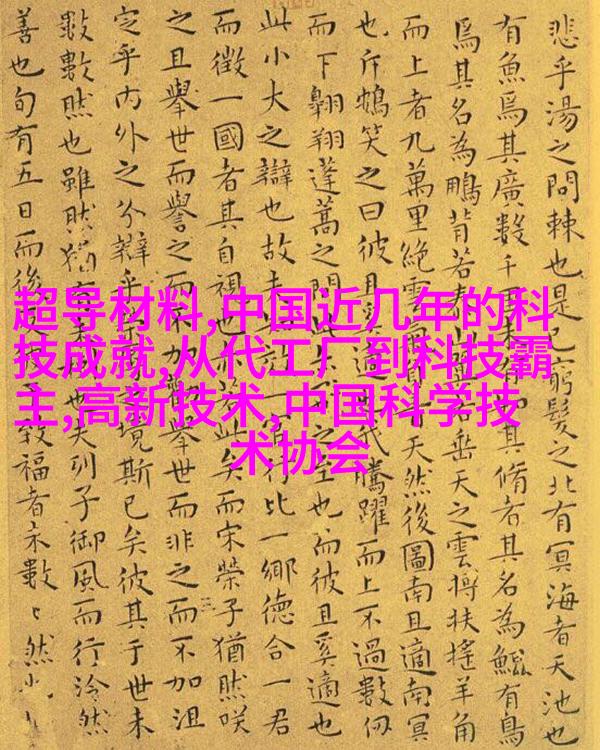 超导材料,中国近几年的科
技成就,从代工厂到科技霸
主,高新技术,中国科学技
术协会
悲乎湯之問棘也是已窮髮之北有冥海者天池也
有魚焉其廣數千里未有其脩者其名為鯤有鳥
焉其名為鵬背若泰山若天之雲摶扶搖羊角
而上者九萬里絕雲氣天然後圖南且適南冥
也斥鴳笑之曰彼且奚適騰躍而上不過數仞
而下翱翔蓬蒿之間之至也而彼且奚適也
此小大之辯也故夫一官行比一鄉德合一君
而徵一國者其自視也若此矣而宋榮子猶然咲
之且舉世而譽之而不加舉世而非之而不加沮
定乎内外之分辯乎境斯已矣彼其于世未
數數然也雖然猶有未夫列子御風而行泠然
善也旬有五日而後致福者未數〻然